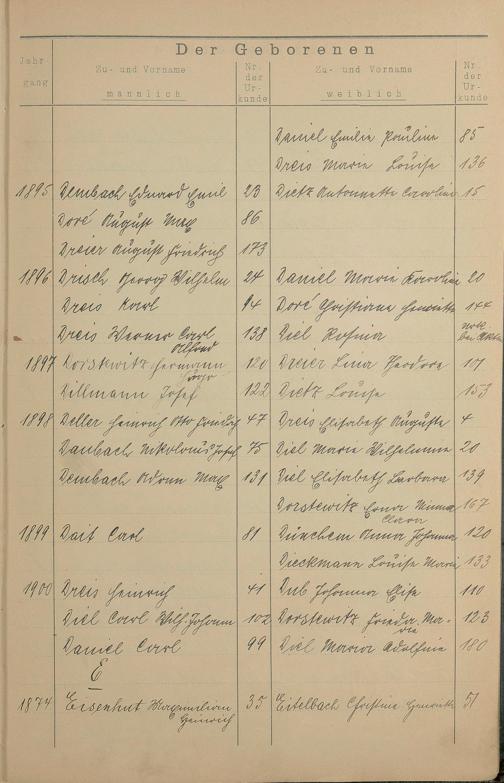 Der Geborenen
Jahrgang Zu- und Vorname männlich Nr. der Urkunde Zu- und Vorname weiblich Nr. der Urkunde
Daniel Emilie Pauline 85
Dreis Marie Louise 136
1895 Dembach Eduard Emil 23 Dietz Antonnette Caroline 15
Doré August Max 86
Dreier August Friedrich 173
1896 Drisch Georg Wilhelm 24 Daniel Marie Karoline 20
Dreis Karl 94 Doré Christiane Henriette 144
Dreis Werner Carl Alfred 138 Diel Rosina
1897 Dorstewitz Hermann Hugo 120 Dreier Lina Theodore 101
Dillmann Josef 122 Dietz Louise 153
1898 Deller Heinrich Otto Friedrich 47 Dreis Elisabeth Auguste 4
Daubach Nikolaus Josef 75 Diel Marie Wilhelmine 20
Dembach Max 131 Diel Elisabeth Barbara 139
Dorstewitz Erna Minna Clara 167
1899 Dait Carl 81 Dünchem Anna Johanna 120
Dieckmann Louise Marie 133
1900 Dreis Heinrich 41 Dub Johanna Elise 110
Diel Carl Wilh. Johann 102 Dorstewitz Frieda Marie 123
Daniel Carl 99 Diel Maria Adolfine 180
E
1874 Eisenhut Maximilian Heinrich 35 Eitelbach Christine Henriette 51